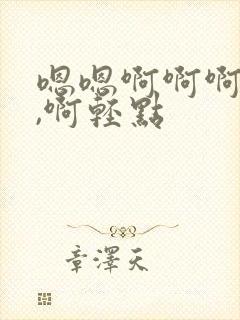 嗯嗯啊啊啊
,啊輕點
章澤天